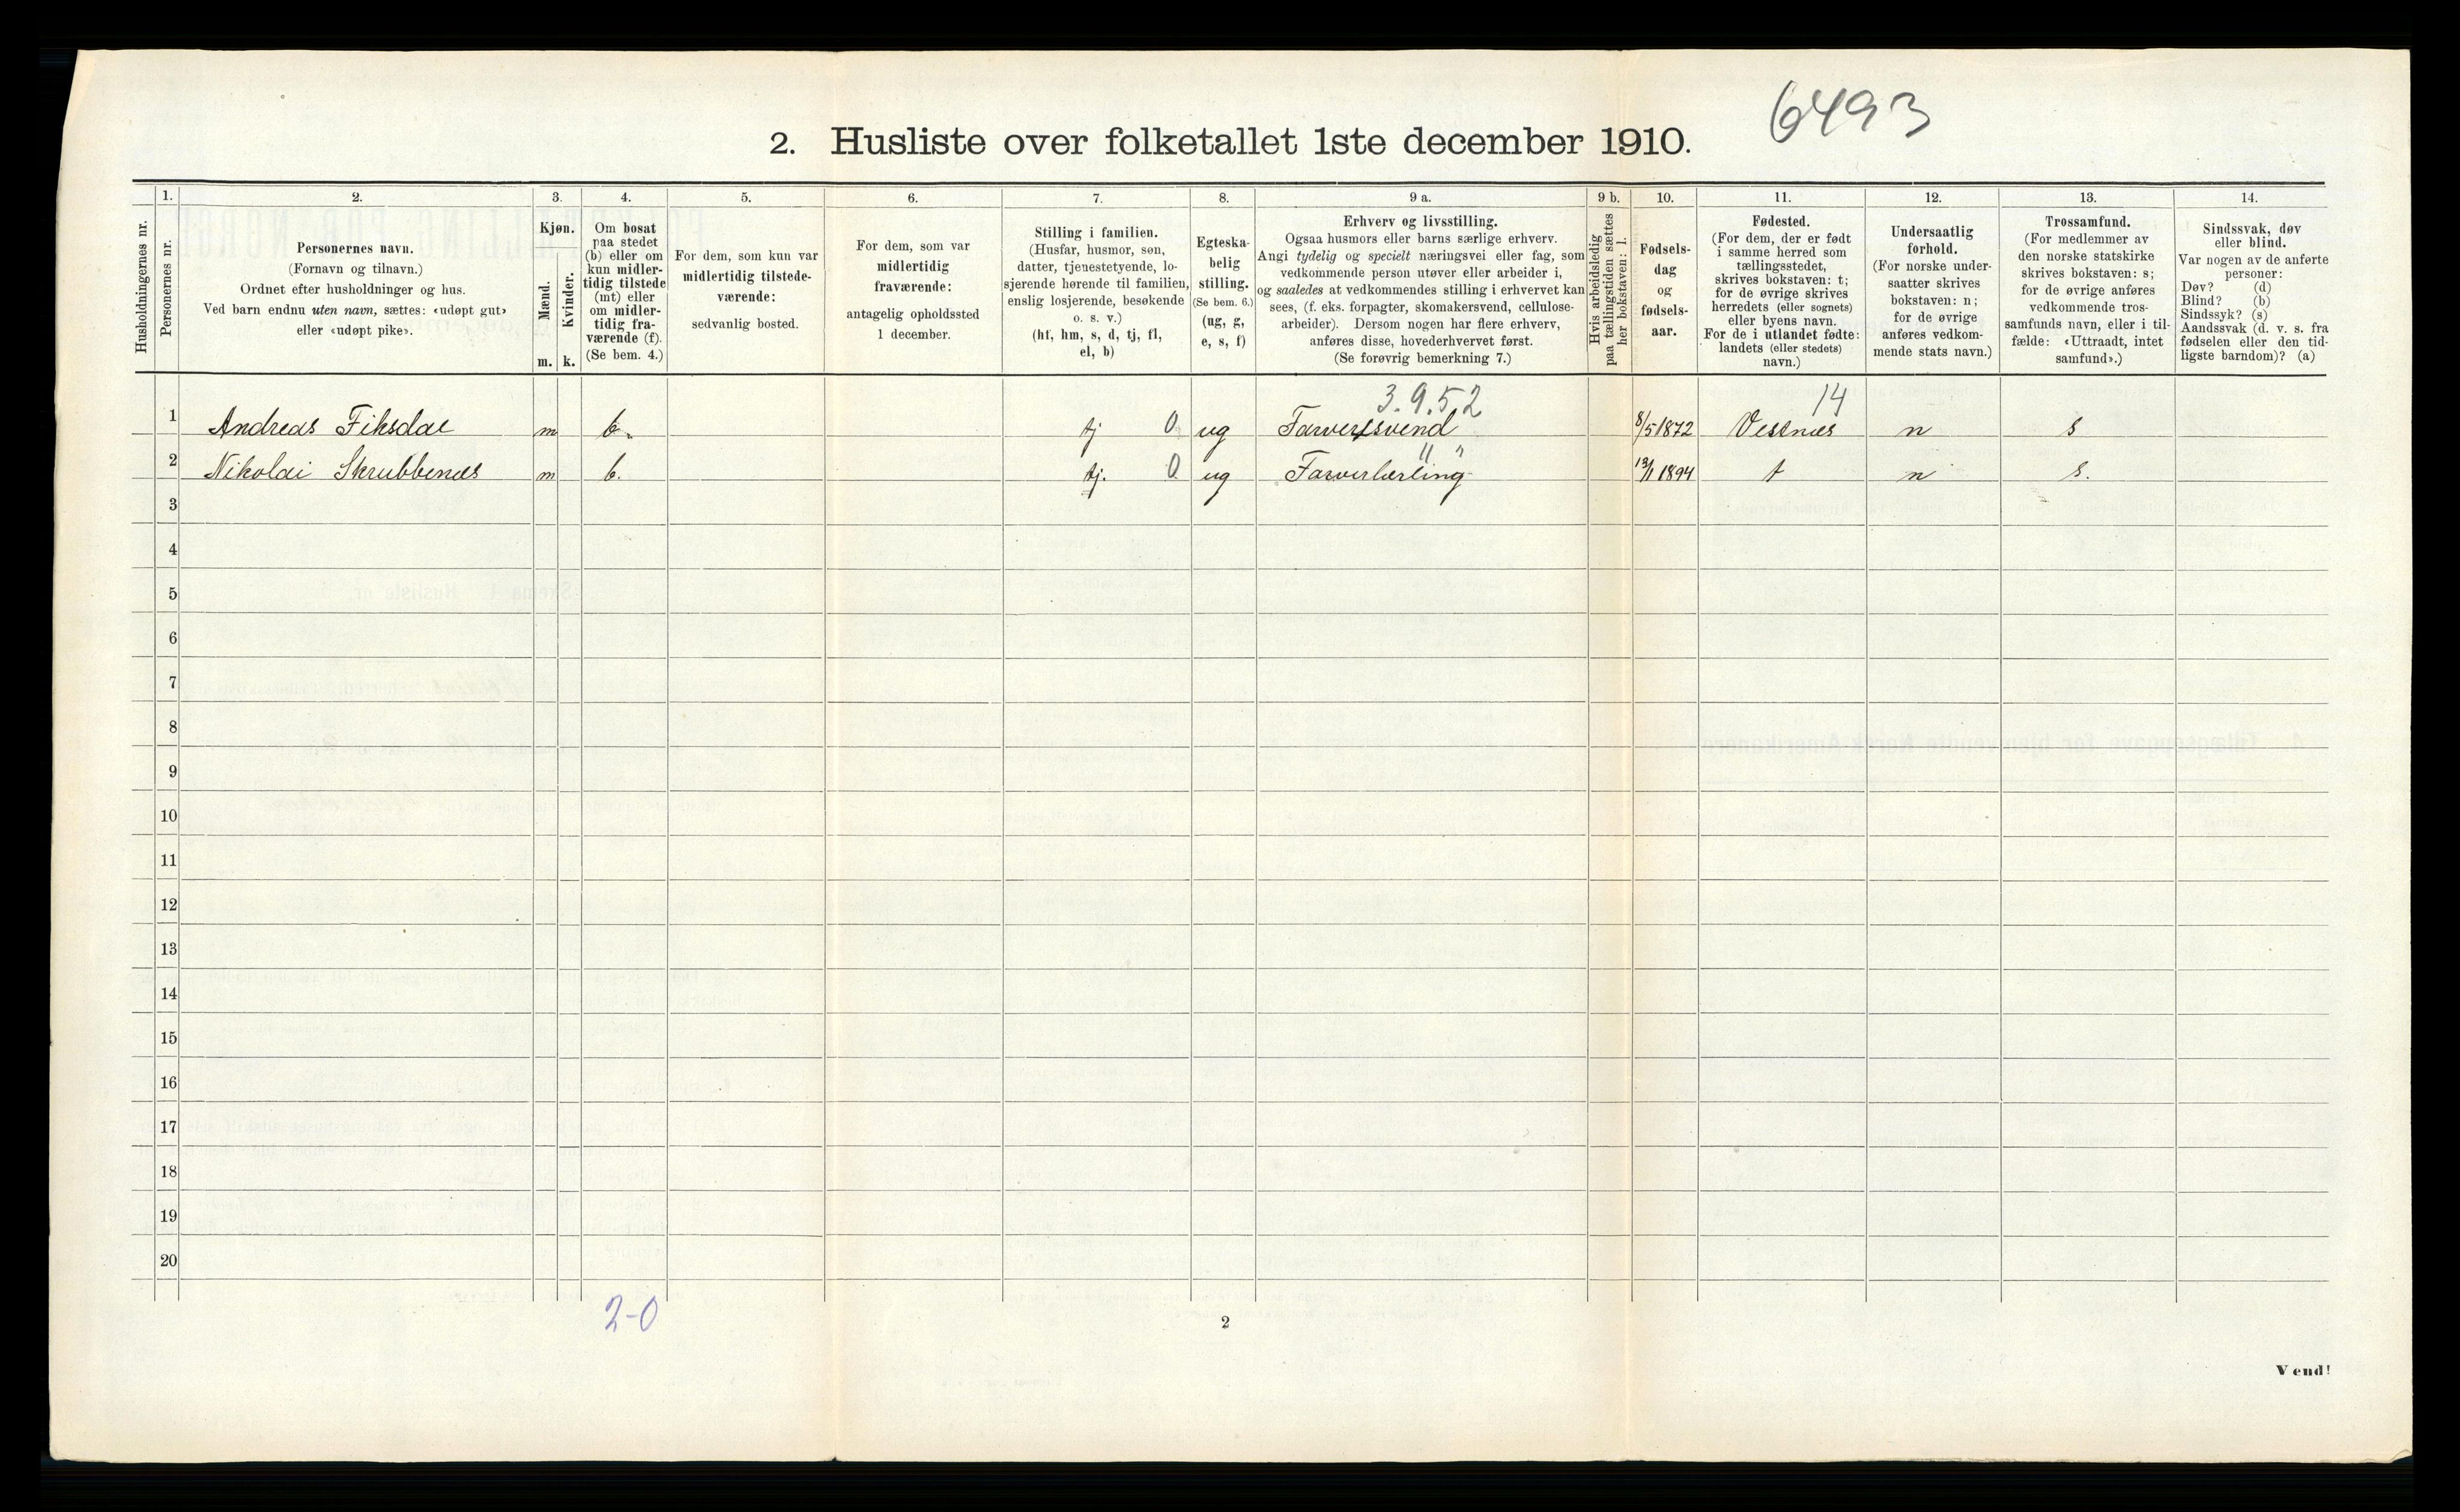 6493
2. Husliste over folketallet 1ste december 1910.
Husholdningernes nr.
1.
Personernes nr.
2.
Personernes navn.
(Fornavn og tilnavn.)
Ordnet efter husholdninger og hus.
Ved barn endnu uten navn, sættes: «udøpt gut»
eller «udøpt pike».
3.
Kjøn.
Mænd.
m.
Kvinder.
k.
4.
Om bosat
paa stedet
(b) eller om
kun midler-
tidig tilstede
(mt) eller
om midler-
tidig fra-
værende (f).
(Se bem. 4.)
5.
For dem, som kun var
midlertidig tilstede-
værende:
sedvanlig bosted.
6.
For dem, som var
midlertidig
fraværende:
antagelig opholdssted
1 december.
7.
Stilling i familien.
(Husfar, husmor, søn,
datter, tjenestetyende, lo-
sjerende hørende til familien,
enslig losjerende, besøkende
o. s. v.)
(hf, hm, s, d, tj, fl,
el, b)
8.
Egteska-
belig
stilling.
(Se bem. 6.)
(ug, g,
e, s, f)
9 a.
Erhverv og livsstilling.
Ogsaa husmors eller barns særlige erhverv.
Angi tydelig og specielt næringsvei eller fag, som
vedkommende person utøver eller arbeider i,
og saaledes at vedkommendes stilling i erhvervet kan
sees, (f. eks. forpagter, skomakersvend, cellulose-
arbeider). Dersom nogen har flere erhverv,
anføres disse, hovederhvervet først.
(Se forøvrig bemerkning 7.)
9 b.
Hvis arbeidsledig
paa tællingstiden sættes
her bokstaven: l.
10.
Fødsels-
dag
og
fødsels-
aar.
11.
Fødested.
(For dem, der er født
i samme herred som
tællingsstedet,
skrives bokstaven: t;
for de øvrige skrives
herredets (eller sognets)
eller byens navn.
For de i utlandet fødte:
landets (eller stedets)
navn.)
12.
Undersaatlig
forhold.
(For norske under-
saatter skrives
bokstaven: n;
for de øvrige
anføres vedkom-
mende stats navn.)
13.
Trossamfund.
(For medlemmer av
den norske statskirke
skrives bokstaven: s;
for de øvrige anføres
vedkommende tros-
samfunds navn, eller i til-
fælde: «Uttraadt, intet
samfund».)
14.
Sindssvak, døv
eller blind.
Var nogen av de anførte
personer:
Døv? (d)
Blind? (b)
Sindssyk? (s)
Aandssvak (d. v. s. fra
fødselen eller den tid-
ligste barndom)? (a)
3.9.52 14
1 Andreas Fiksdal m b. tj 0 ug Farversvend 8/5 1872 Vestnæs n s
" "
2 Nikolai Skrubbenæs m b. tj. 0 ug Farverlærling 13/1 1894 t n s.
3
4
5
6
7
8
9
10
11
12
13
14
15
16
17
18
19
20
2-0
2
Vend!